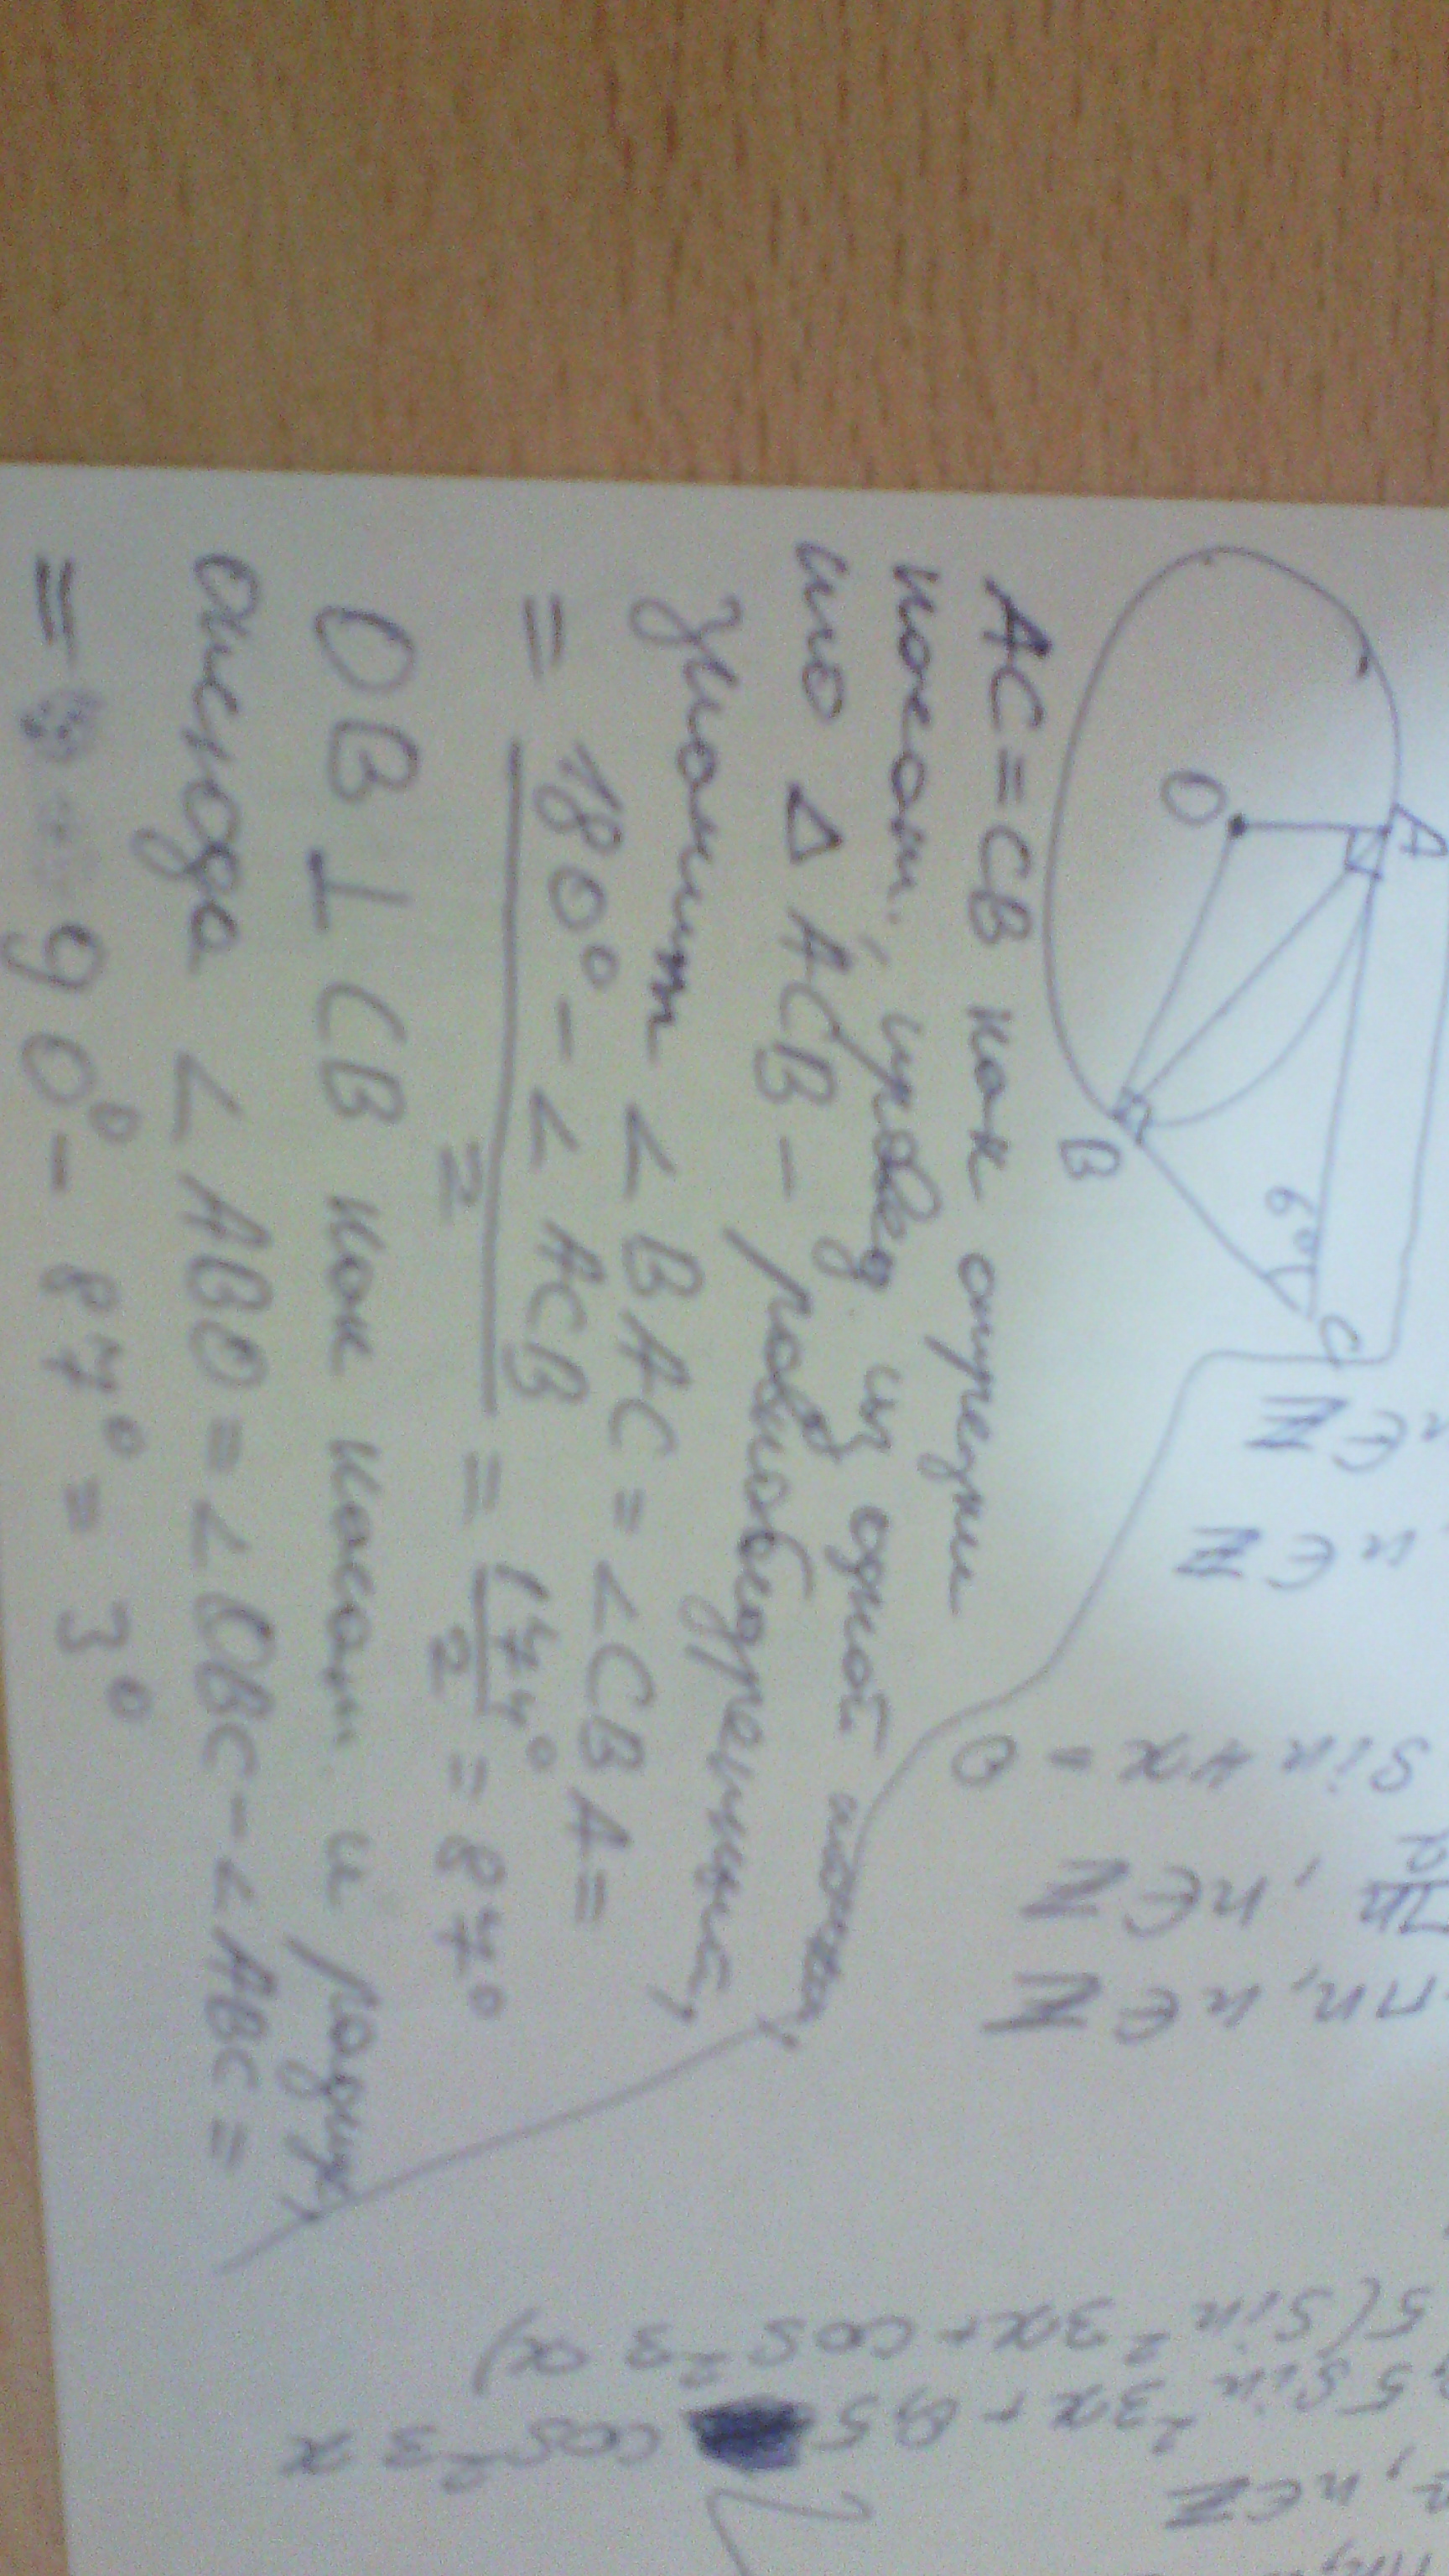 A
O
B
6°
C
AC = CB как отрезки
касат., провед. из одной точки,
то Δ ACB - равнобедренный,
Значит ∠ BAC = ∠CBA =
= 180° - ∠ ACB / 2 = 174° / 2 = 87°
OB ⊥ CB как касат. и радиус,
отсюда ∠ ABO = ∠OBC - ∠ABC =
= 90° - 87° = 3°
n∈N
n∈N
sin 4x = 0
, n∈N
πn, n∈N
5(sin²3x + cos²3x)
5 sin²3x + 0,5 cos²3x
, n∈Z